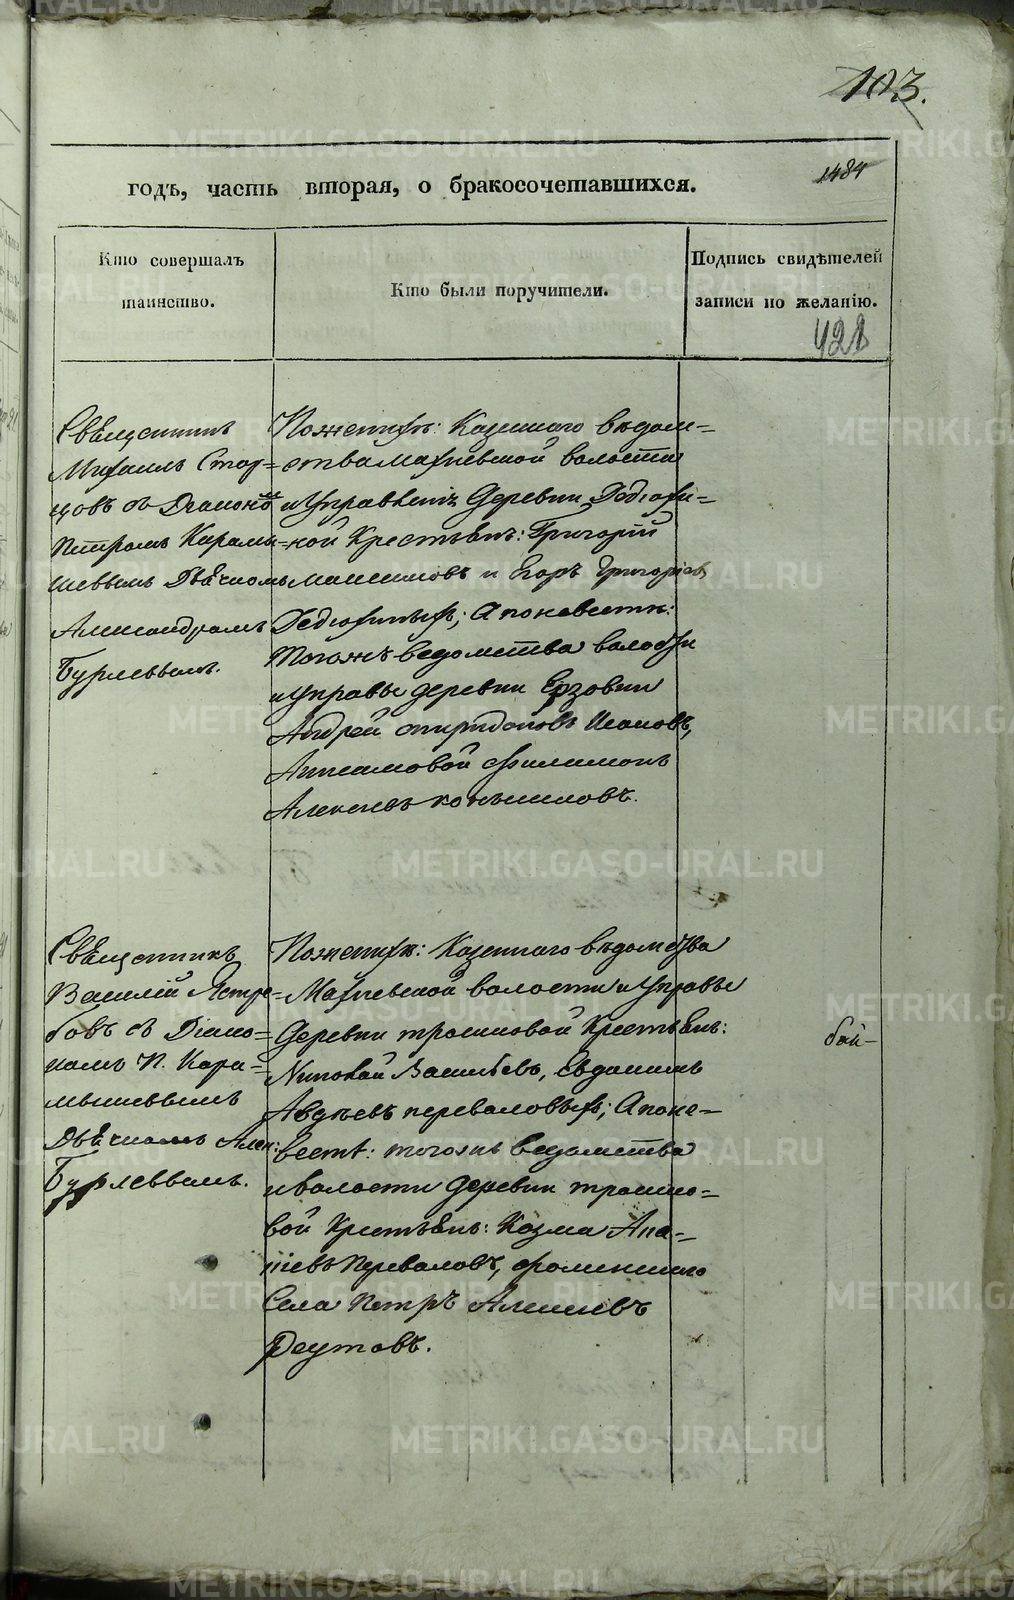 103.
1484
годъ, часть вторая, о бракосочетавшихся.
Кто совершалъ
таинство.
Кто были поручители.
Подпись свидѣтелей
записи по желанію.
428
Свѣщенникъ
Михаилъ Стар-
цовъ съ Діакономъ
Петромъ Карамы-
шевымъ Дьячкомъ
Александромъ
Бурлевымъ.
Пожених: Казеннаго ведом-
ства Махневской волости
и Управленія Деревни
ной Крестьянъ: Григорій
Максимовъ и Егоръ Григорьевъ
; А поневесте:
Тогожъ ведомства волости
и Управы деревни Ерзовки
Андрей Спиридоновъ Исаковъ,
Анисимовой Филимонъ
Алексеевъ
Свѣщенникъ
Василій Ястре-
бовъ съ Діако-
номъ П. Кара-
мышевымъ
Дьячкомъ Алек:
Бурлевымъ.
Пожених: Казеннаго ведомства
Махневской волости и Управы
Деревни Трошковой Крестьянъ:
Николай Васильевъ, Евдокимъ
Авдеевъ Переваловых; А поне-
весте: тогожъ ведомства
и волости деревни Трошко-
вой Крестьянъ: Козма
Переваловъ, Фоминскаго
Села Петръ Алексеевъ
Реутовъ.
METRIKI.GASO-URAL.RU